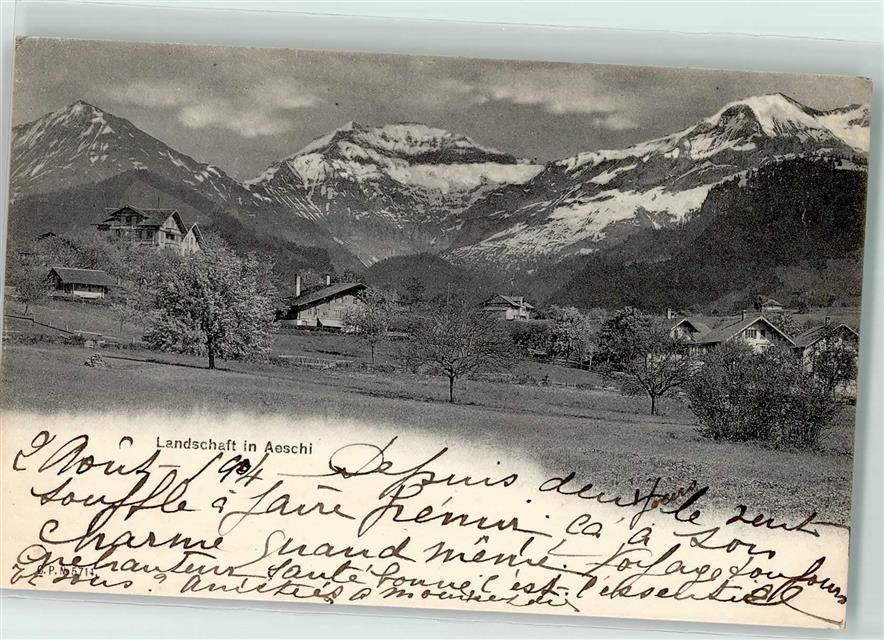 Landschaft in Aeschi
2 Août 1904 Depuis deux jours le vent
souffle à faire frémir. ça a son
charme quand même. Voyage toujours
enchanteur santé bonne c'est l'essentiel
C. P. N. 5714
Et vous? Amitiés